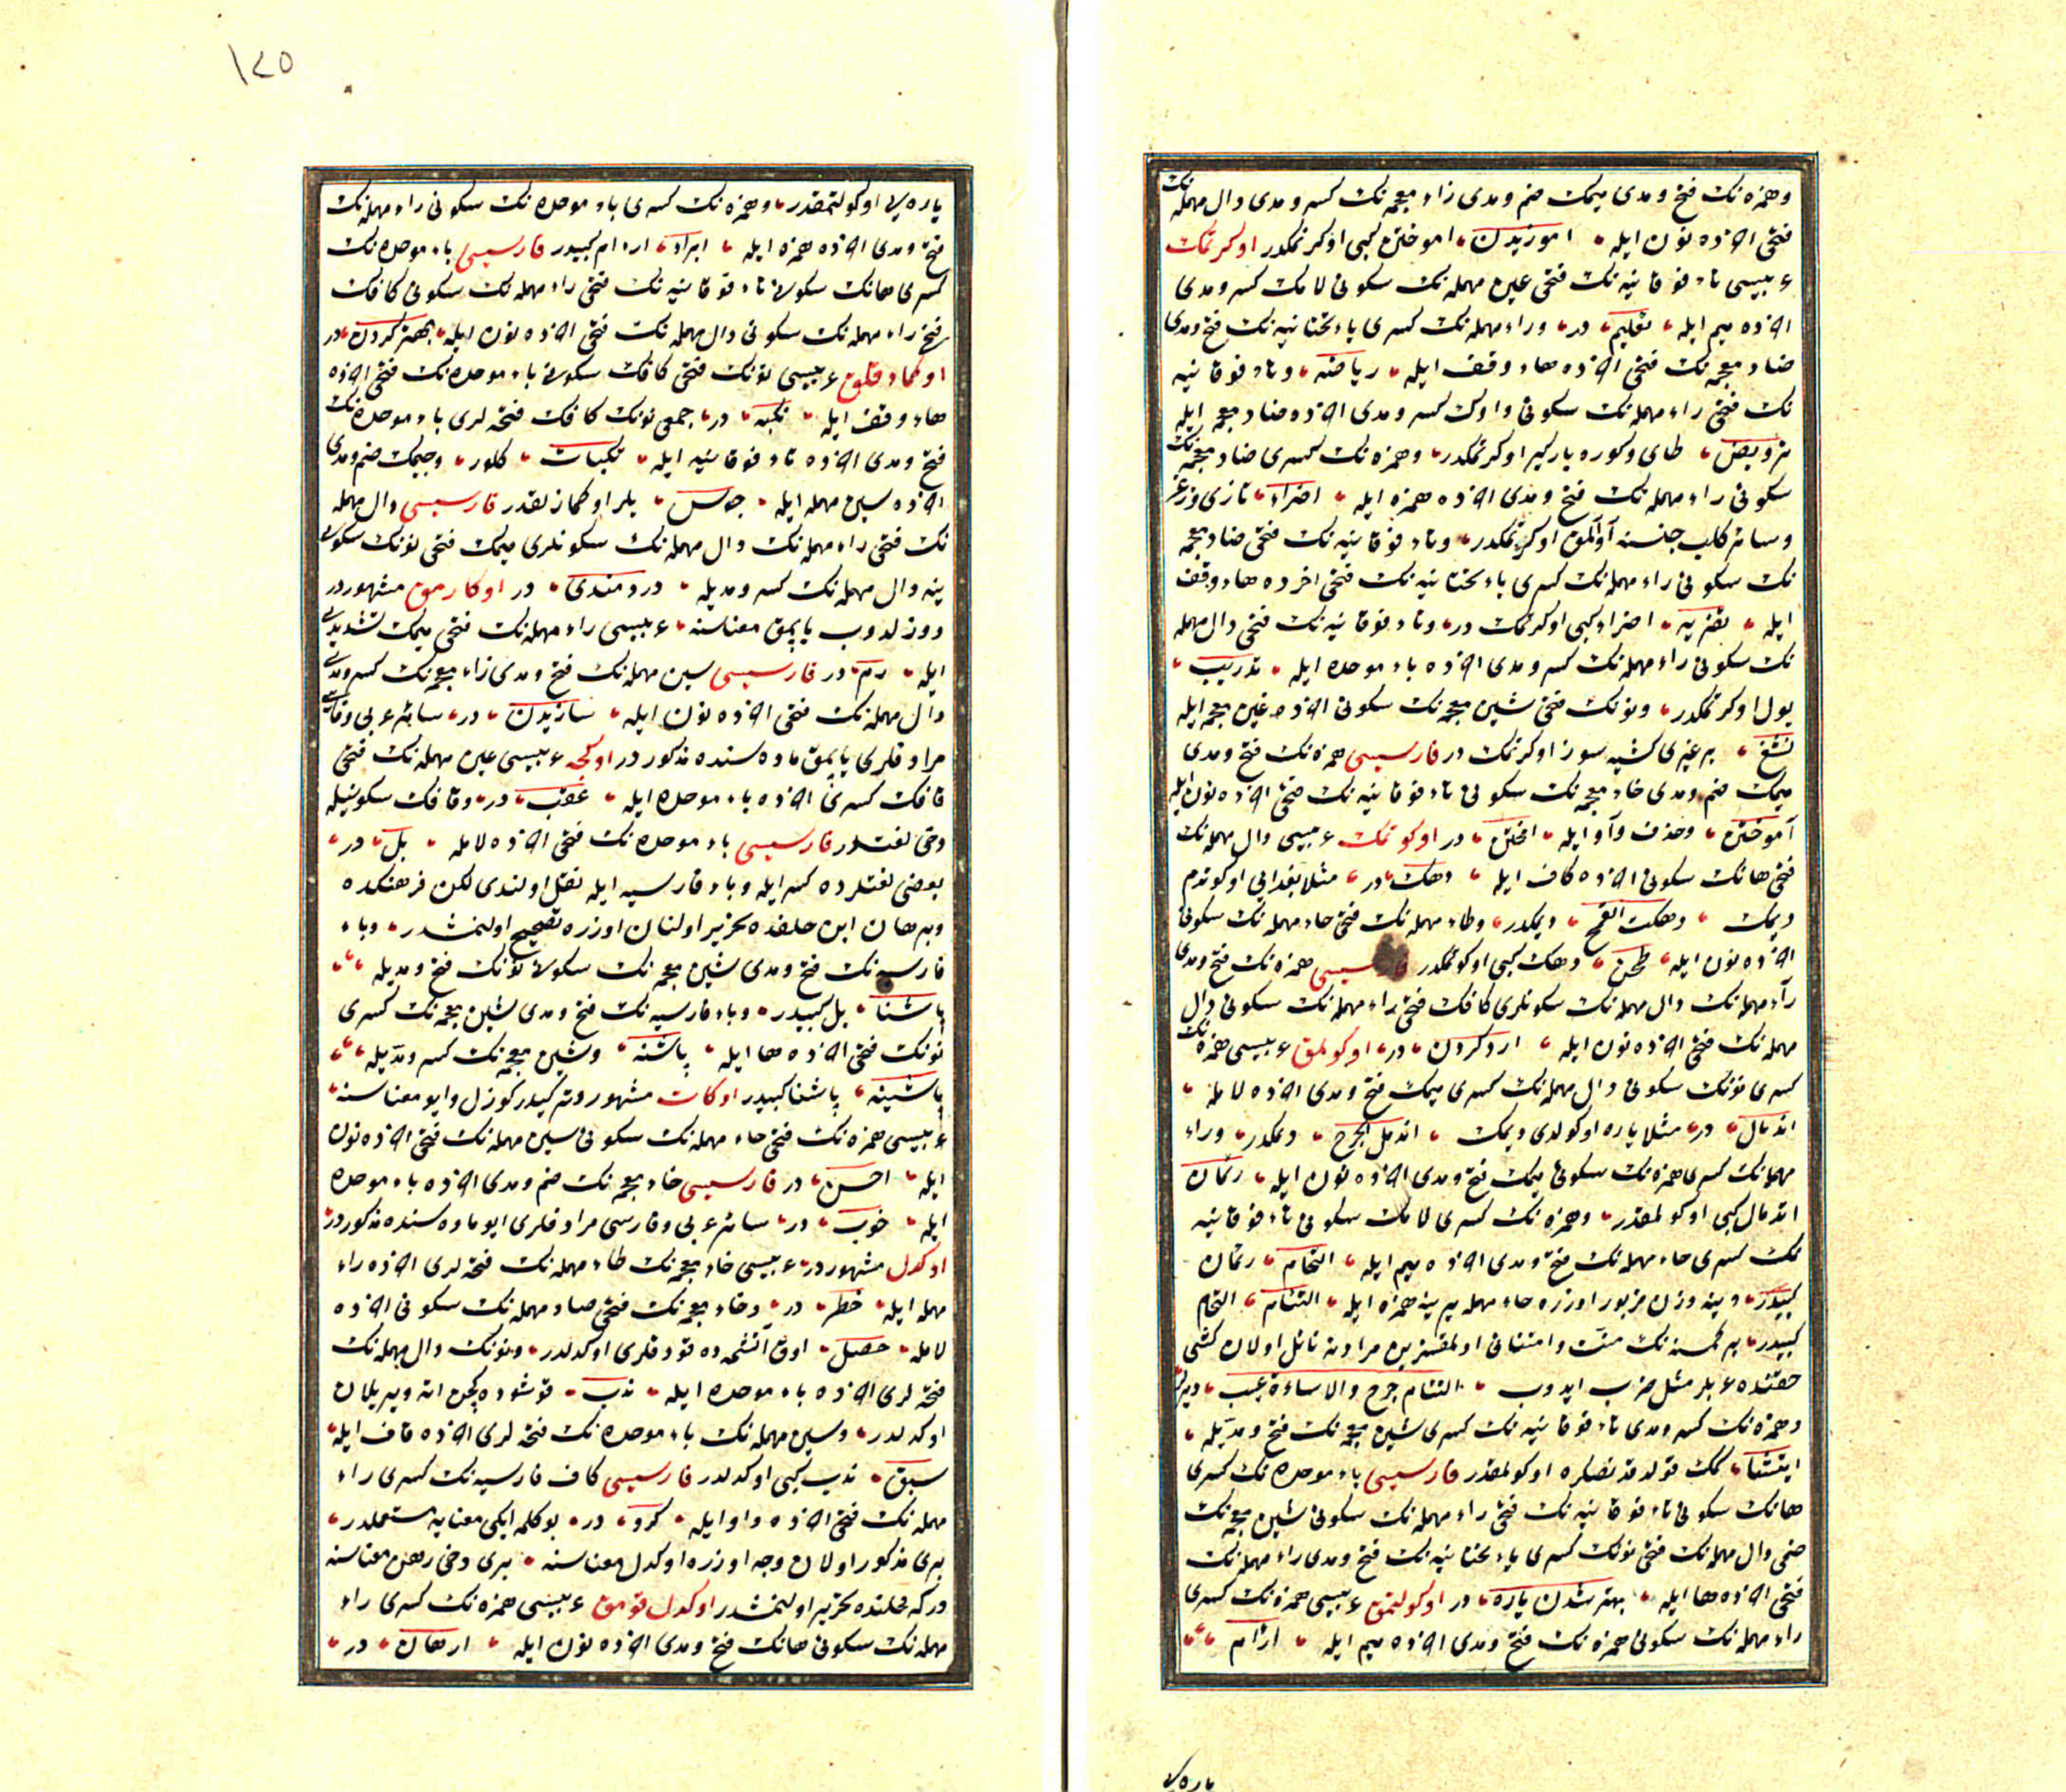 وهمزه نك فتح ومدی میمك ضم ومدی زاء معجمه نك كسر ومدی دال مهمله نك
فتحی اخرده نون ایله آموزیدن آموختن كبی اوكرتمكدر اوكرتمك
عربیسی تاء فوقانیه نك فتحی عین مهمله نك سكونی لامك كسر ومدی
اخرده میم ایله تعلیم در وراء مهمله نك كسری یاء تحتانیه نك فتح ومدی
ضاد معجمه نك فتحی اخرده هاء وقف ایله ریاضه وتاء فوقانیه
نك فتحی راء مهمله نك سكونی واوك كسر ومدی اخرده ضاد معجمه ایله
ترویض طای وكوره باركیر اوكرتمكدر وهمزه نك كسری ضاد معجمه نك
سكونی راء مهمله نك فتح ومدی اخرده همزه ایله اضراء تازی وزغر
وسائر كلب جنسنه آو آلمق اوكرتمكدر وتاء فوقانیه نك فتحی ضاد معجمه
نك سكونی راء مهمله نك كسری یاء تحتانیه نك فتحی اخرده هاء وقف
ایله تضریه اضراء كبی اوكرتمك در وتاء فوقانیه نك فتحی دال مهمله
نك سكونی راء مهمله نك كسر ومدی اخرده باء موحده ایله تدریب
یول اوكرتمكدر ونونك فتحی شین معجمه نك سكونی اخرده غین معجمه ایله
نشغ بر غیری كشیه سوز اوكرتمك در فارسیسی همزه نك فتح ومدی
میمك ضم ومدی خاء معجمه نك سكونی تاء فوقانیه نك فتحی اخرده نون ایله
آموختن وحذف واو ایله امختن در اوكوتمك عربیسی دال مهمله نك
فتحی هانك سكونی اخرده كاف ایله دهك در مثلا بغدایی اوكوتدم
دیمك دهكت القمح دیمكدر وطاء مهمله نك فتحی حاء مهمله نك سكونی
اخرده نون ایله طحن دهك كبی اوكوتمكدر فارسیسی همزه نك فتح ومدی
راء مهمله نك دال مهمله نك سكونلری كافك فتحی راء مهمله نك سكونی دال
مهمله نك فتحی اخرده نون ایله ارد كردن در اوكولمق عربیسی همزه نك
كسری نونك سكونی دال مهمله نك كسری میمك فتح ومدی اخرده لامله
اندمال در مثلا یاره اوكولدی دیمك اندمل الجرح دیمكدر وراء
مهمله نك كسری همزه نك سكونی میمك فتح ومدی اخرده نون ایله رئمان
اندمال كبی اوكولمقدر وهمزه نك كسری لامك سكونی تاء فوقانیه
نك كسری حاء مهمله نك فتح ومدی اخرده میم ایله التحام رئمان
كبیدر وینه وزن مزبور اوزره حاء مهمله یرینه همزه ایله التئام التحام
كبیدر بر كمسنه نك منت وامتنانی اولمقسزین مرادینه نائل اولان كشی
حقنده عربلر مثل ضرب ایدوب التئام جرح والاساءة غیب دیرلر
وهمزه نك كسر ومدی تاء فوقانیه نك كسری شین معجمه نك فتح ومدیله
ایتشا كمك تولد قدنصكره اوكولمقدر فارسیسی باء موحده نك كسری
هانك سكونی تاء فوقانیه نك فتحی راء مهمله نك سكونی شین معجمه نك
ضمی دال مهمله نك فتحی نونك كسری یاء تحتانیه نك فتح ومدی راء مهمله نك
فتحی اخرده ها ایله بهتر شدن یاره در اوكولتمق عربیسی همزه نك كسری
راء مهمله نك سكونی همزه نك فتح ومدی اخرده میم ایله ارآم
یاره یی
١٤٥
یاره یی اوكولتمقدر وهمزه نك كسری باء موحده نك سكونی راء مهمله نك
فتح ومدی اخرده همزه ایله ابراء ارءام كبیدر فارسیسی باء موحده نك
كسری هانك سكونی تاء فوقانیه نك فتحی راء مهمله نك سكونی كافك
فتحی راء مهمله نك سكونی دال مهمله نك فتحی اخرده نون ایله بهتر كردن در
عربیسی نونك فتحی كافك سكونی باء موحده نك فتحی اخرده
هاء وقف ایله نكبه در جمعی نونك كافك فتحه لری باء موحده نك
فتح ومدی اخرده تاء فوقانیه ایله نكبات كلور وجیمك ضم ومدی
اخرده سین مهمله ایله جوس فارسیسی دال مهمله
نك فتحی راء مهمله نك دال مهمله نك سكونلری میمك فتحی نونك سكونی
ینه دال مهمله نك كسر ومدیله دردمندی در مشهوردر
ودوزلدوب یاپمق معناسنه عربیسی راء مهمله نك فتحی میمك تشدیدی
ایله رم در فارسیسی سین مهمله نك فتح ومدی زاء معجمه نك كسر ومدی
دال مهمله نك فتحی اخرده نون ایله سازیدن در سائر عربی وفارسی
مرادفلری یاپمق ماده سنده مذكوردر اوكجه عربیسی عین مهمله نك فتحی
قافك كسری اخرده باء موحده ایله عقب در وقافك سكونیله
دخی لغتدر فارسیسی باء موحده نك فتحی اخرده لامله بل در
بعضی لغتلرده كسر ایله وباء فارسیه ایله نقل اولندی لكن فرهنكده
وبرهان ابن خلفده تحریر اولنان اوزره تصحیح اولنمشدر وباء
فارسیه نك فتح ومدی شین معجمه نك سكونی نونك فتح ومدیله
پاشنا بل كبیدر وباء فارسیه نك فتح ومدی شین معجمه نك كسری
نونك فتحی اخرده ها ایله پاشنه وشین معجمه نك كسر ومدیله
پاشینه پاشنا كبیدر اوكات مشهور وتركیدر كوزل وایو معناسنه
عربیسی همزه نك فتحی حاء مهمله نك سكونی سین مهمله نك فتحی اخرده نون
ایله احسن در فارسیسی خاء معجمه نك ضم ومدی اخرده باء موحده
ایله خوب در سائر عربی وفارسی مرادفلری ایو ماده سنده مذكوردر
اوكدل مشهوردر عربیسی خاء معجمه نك طاء مهمله نك فتحه لری اخرده راء
مهمله ایله خطر در وخاء معجمه نك فتحی صاد مهمله نك سكونی اخرده
لامله خصل اوق آتشمه ده قودقلری اوكدلدر ونونك دال مهمله نك
فتحه لری اخرده باء موحده ایله ندب قوشوده كچن اته ویریلان
اوكدلدر وسین مهمله نك باء موحده نك فتحه لری اخرده قاف ایله
سبق ندب كبی اوكدلدر فارسیسی كاف فارسیه نك كسری راء
مهمله نك فتحی اخرده واو ایله كرو در بو كلمه ایكی معنایه مستعملدر
بری مذكور اولان وجه اوزره اوكدل معناسنه بری دخی رهن معناسنه
دركه محلنده تحریر اولنمشدر اوكدل قومق عربیسی همزه نك كسری راء
مهمله نك سكونی هانك فتح ومدی اخرده نون ایله ارهان در